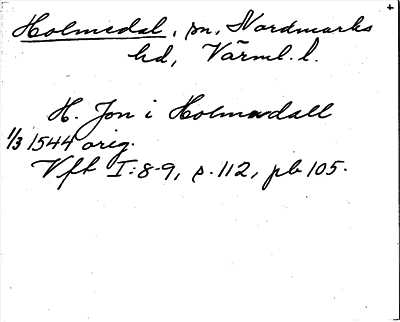 Holmedal, sn, Nordmarks
hd, Värml. l.
H. Jon i Holmadall
1/3 1544 orig.
Vft I:8-9, s. 112, pb 105.